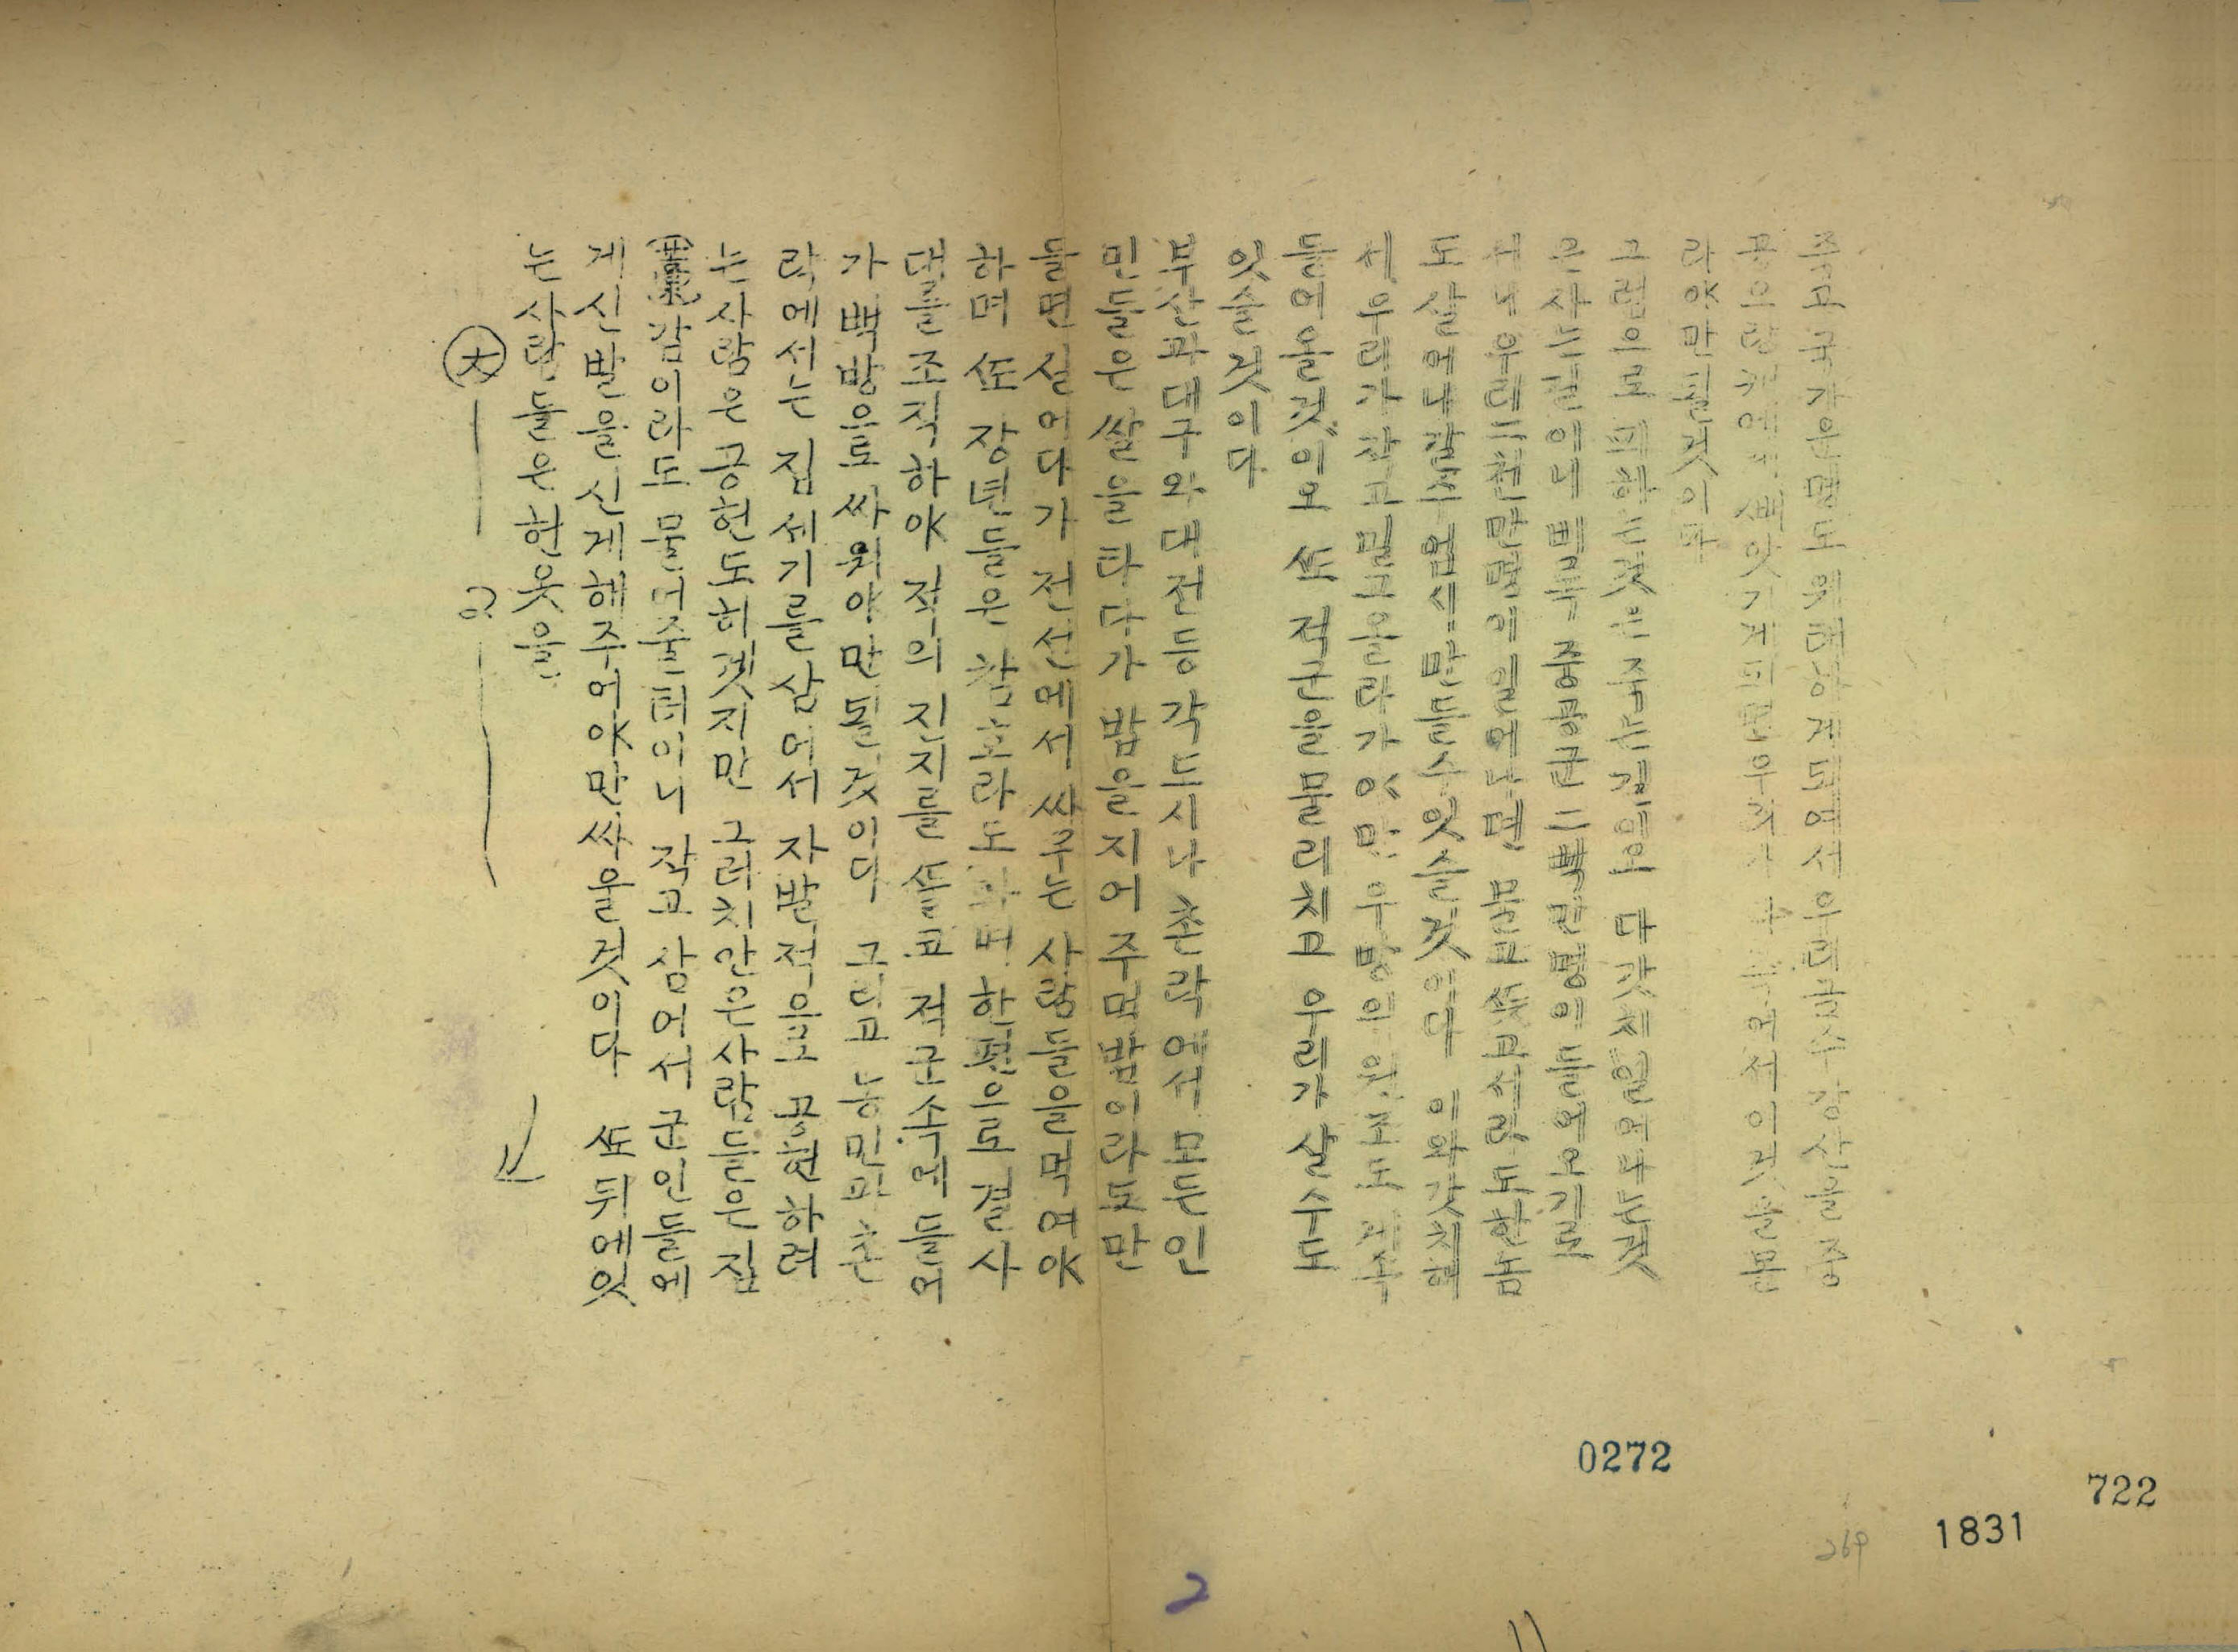 죽고 국가운명도 위태하게되여서 우리금수강산을 중
공으랑캐에게 빼앗기게되면 우리가 이것을 몬
라야만될것이다
그럼으로 피해는것은 죽는길이오 다갓치일어나는것
은 사는길이네 비록 중공군 二百만명이들어오기로
서니 우리 二천만명이 일어나면 물고 뜻고서라도 한놈
도 살어나갈수 업시 만들수 잇슬것이다 이와갓치해
서 우리가 작고 밀고올라가야만 우방의 원조도 계속
들어올것이오 또 적군을 물리치고 우리가 살수도
잇슬것이다
부산과 대구와 대전등 각도시나 촌락에서 모든인
민들은 쌀을 타다가 밥을지어 주먹밥이라도 만
들면 실어다가 전선에서 싸우는 사람들을 먹여야
하며 또 장년들은 참호라도 파며 한편으로 결사
대를 조직하야 적의 진지를 뚤코 적군속에 들어
가 백방으로 싸워야만 될것이다 그리고 농민과 촌
락에서는 집세기를 삼어서 자발적으로 공헌하려
는사람은 공헌도히켓지만 그러치안은사람들은 집
(葉)감이라도 물어줄터이니 작고 삼어서 군인들에
게 신발을 신게해주어야만 싸울것이다 또 뒤에잇
는사람들은 헌옷을
大
0272
722
1831
269
2